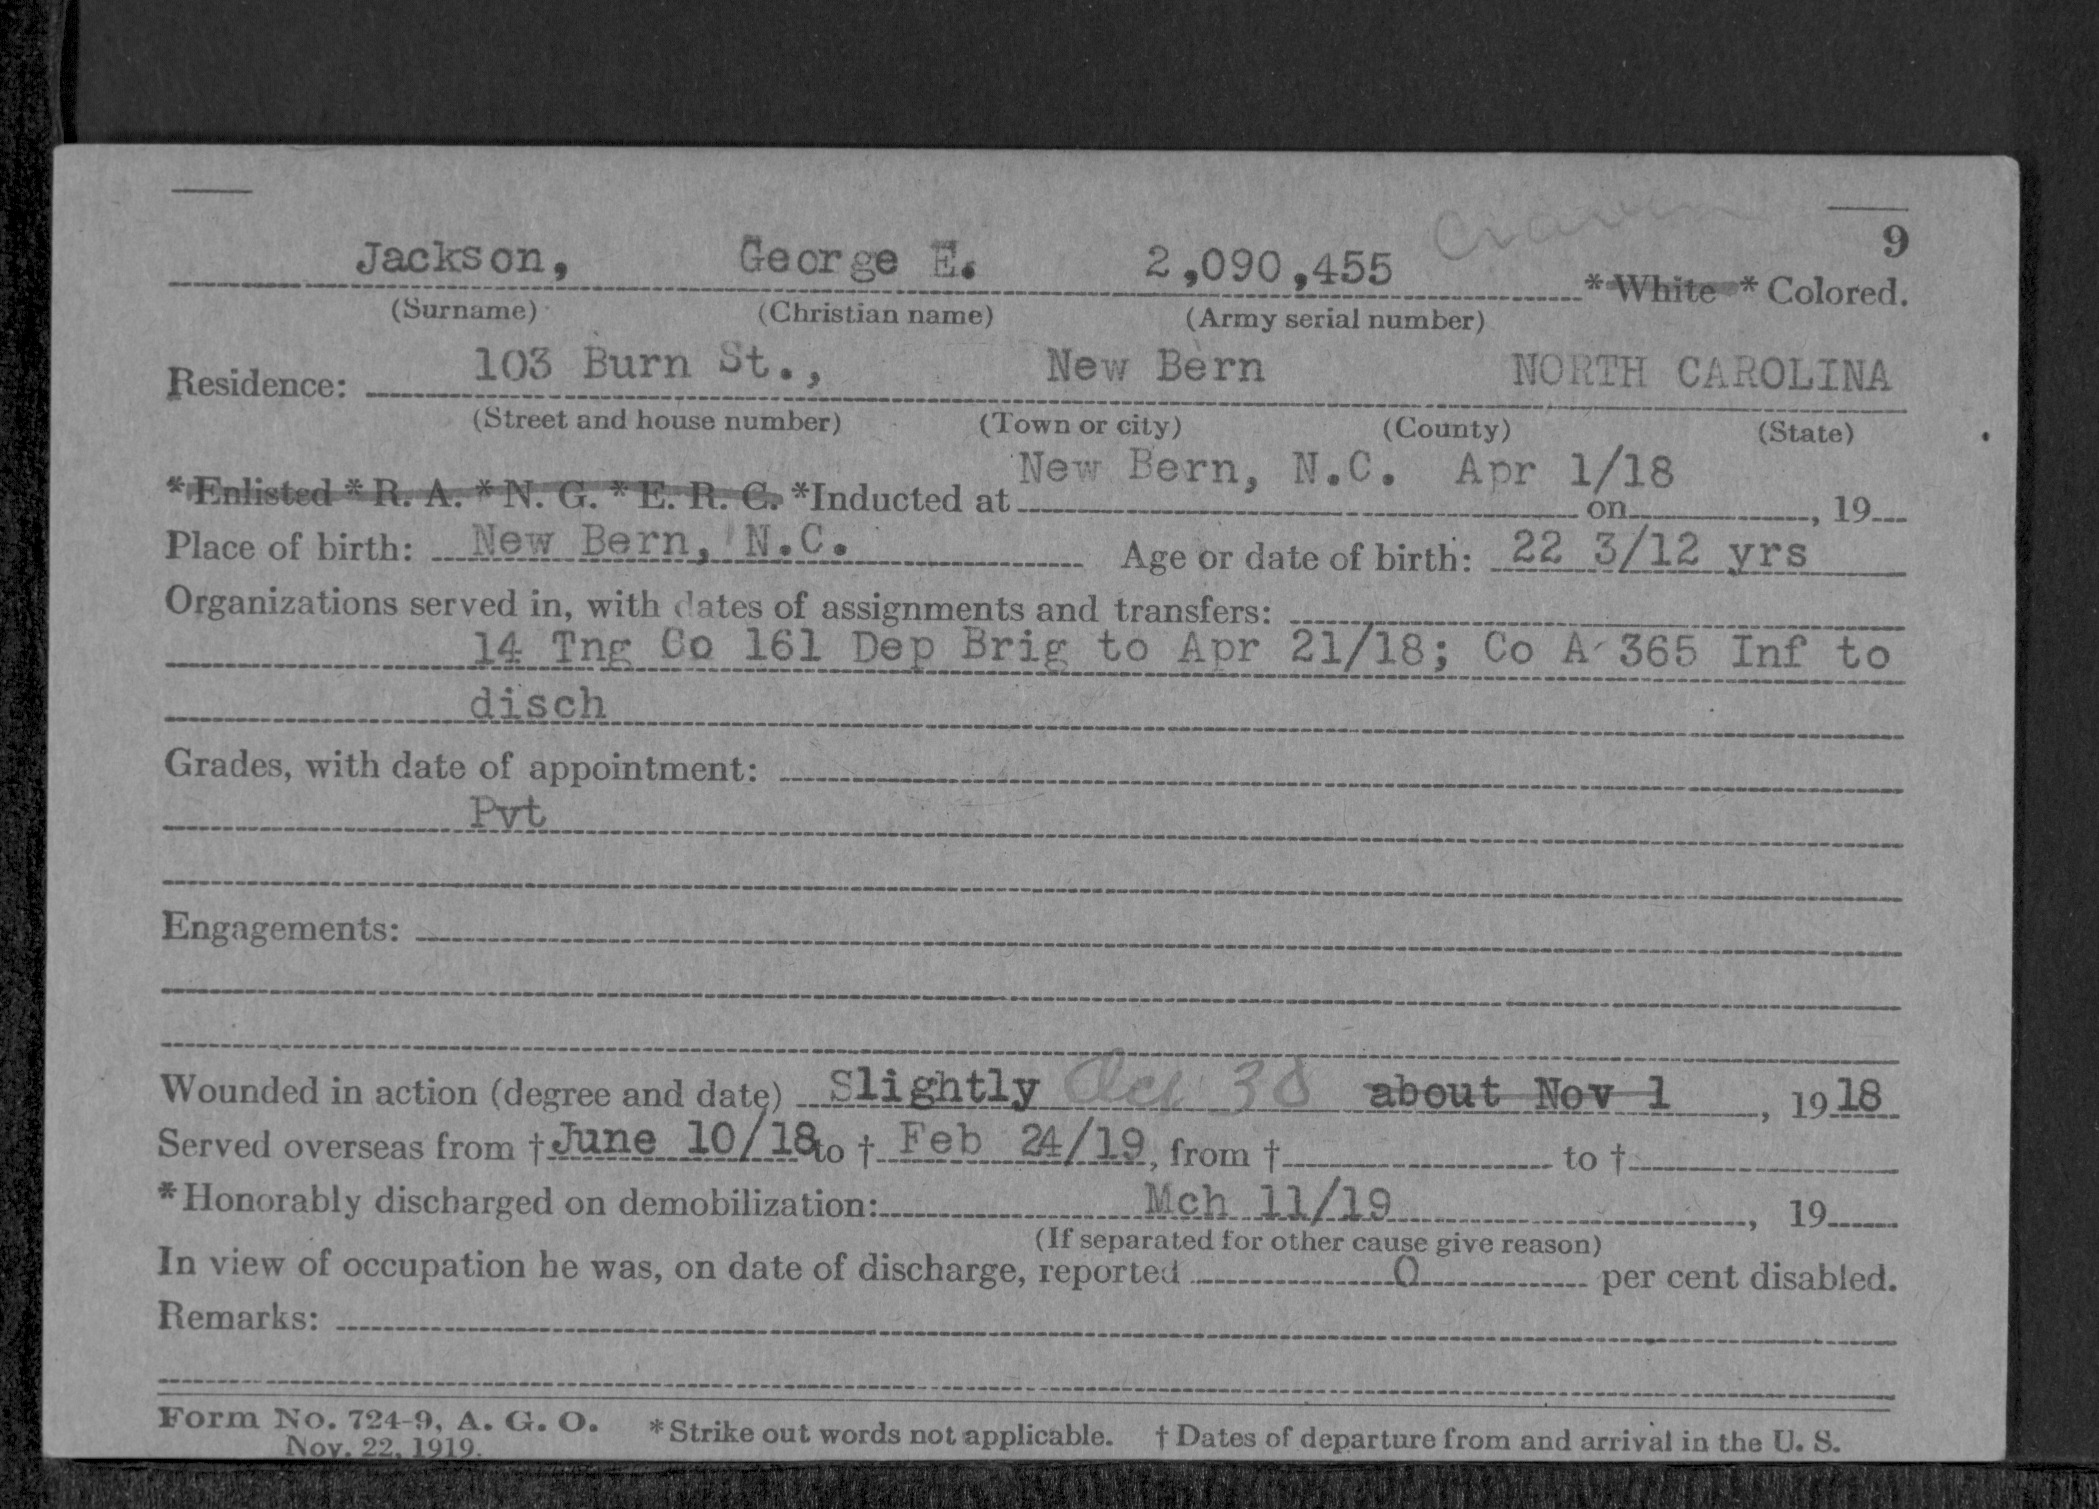 Craven
9
Jackson, George E. 2,090,455 *White *Colored.
(Surname) (Christian name) (Army serial number)
Residence: 103 Burn St., New Bern NORTH CAROLINA
(Street and house number) (Town or city) (County) (State)
*Enlisted *R. A. *N. G. *E. R. C. *Inducted at New Bern, N.C. Apr 1/18 on , 19
Place of birth: New Bern, N.C. Age or date of birth: 22 3/12 yrs
Organizations served in, with dates of assignments and transfers:
14 Tng Co 161 Dep Brig to Apr 21/18; Co A 365 Inf to
disch
Grades, with date of appointment:
Pvt
Engagements:
Wounded in action (degree and date) Slightly Oct 30 about Nov 1, 1918
Served overseas from †June 10/18 to † Feb 24/19, from † to †
*Honorably discharged on demobilization: Mch 11/19, 19
(If separated for other cause give reason)
In view of occupation he was, on date of discharge, reported 0 per cent disabled.
Remarks:
Form No. 724-9, A. G. O. *Strike out words not applicable. † Dates of departure from and arrival in the U. S.
Nov. 22, 1919.